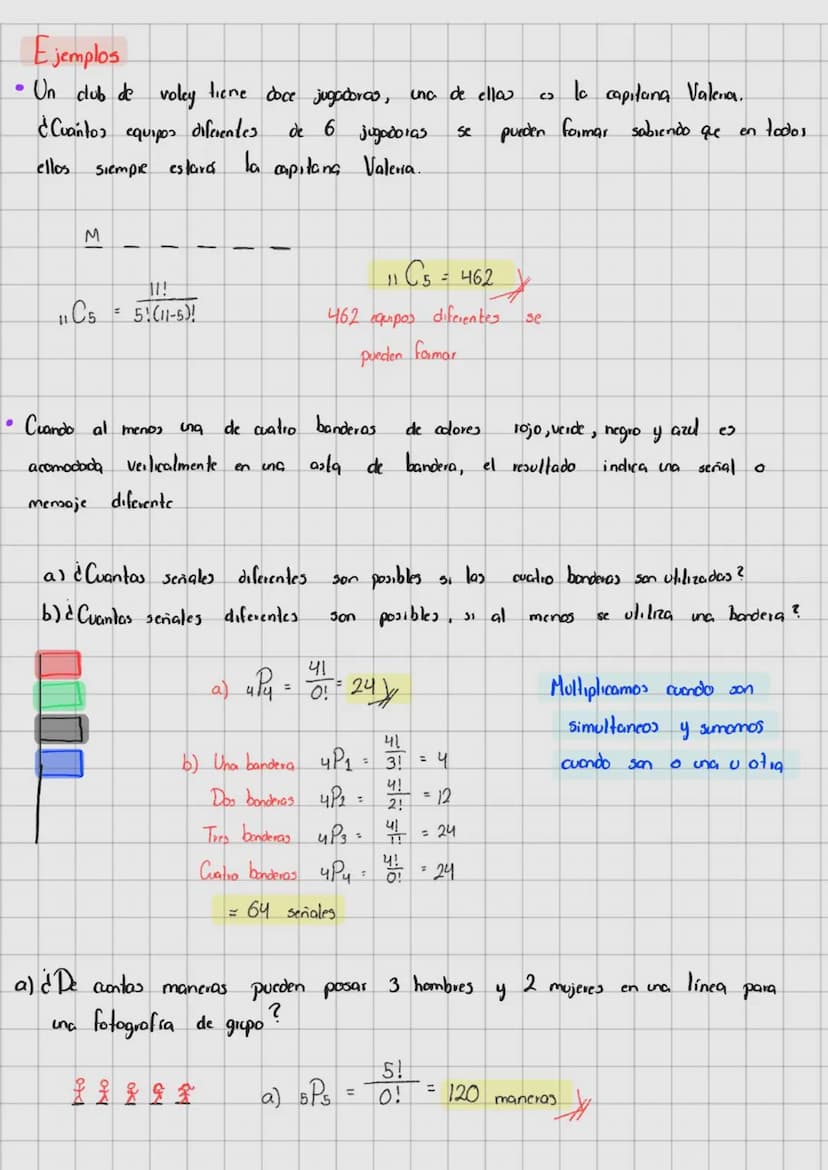 Ejemplos
• Un club de voley tiene doce jugadoras, una de ellas es la capitana Valeria.
¿Cuántos equipos diferentes de 6 jugadoras se pueden formar sabiendo que en todos
ellos siempre estará la capitana Valeria.
M _ _ _ _ _
₁₁C₅ = 11! / 5!(11-5)!
₁₁C₅ = 462
462 equipos diferentes se
pueden formar
• Cuando al menos una de cuatro banderas de colores rojo, verde, negro y azul es
acomodada verticalmente en una asta de bandera, el resultado indica una señal o
mensaje diferente
a) ¿Cuantas señales diferentes son posibles si las cuatro banderas son utilizadas?
b) ¿Cuantas señales diferentes son posibles, si al menos se utiliza una bandera?
a) ₄P₄ = 4! / 0! = 24
Multiplicamos cuando son
simultaneos y sumamos
cuando son o una u otra
b) Una bandera ₄P₁ = 4! / 3! = 4
Dos banderas ₄P₂ = 4! / 2! = 12
Tres banderas ₄P₃ = 4! / 1! = 24
Cuatro banderas ₄P₄ = 4! / 0! = 24
= 64 señales
a) ¿De cuantas maneras pueden posar 3 hombres y 2 mujeres en una línea para
una fotografía de grupo?
a) ₅P₅ = 5! / 0! = 120 maneras